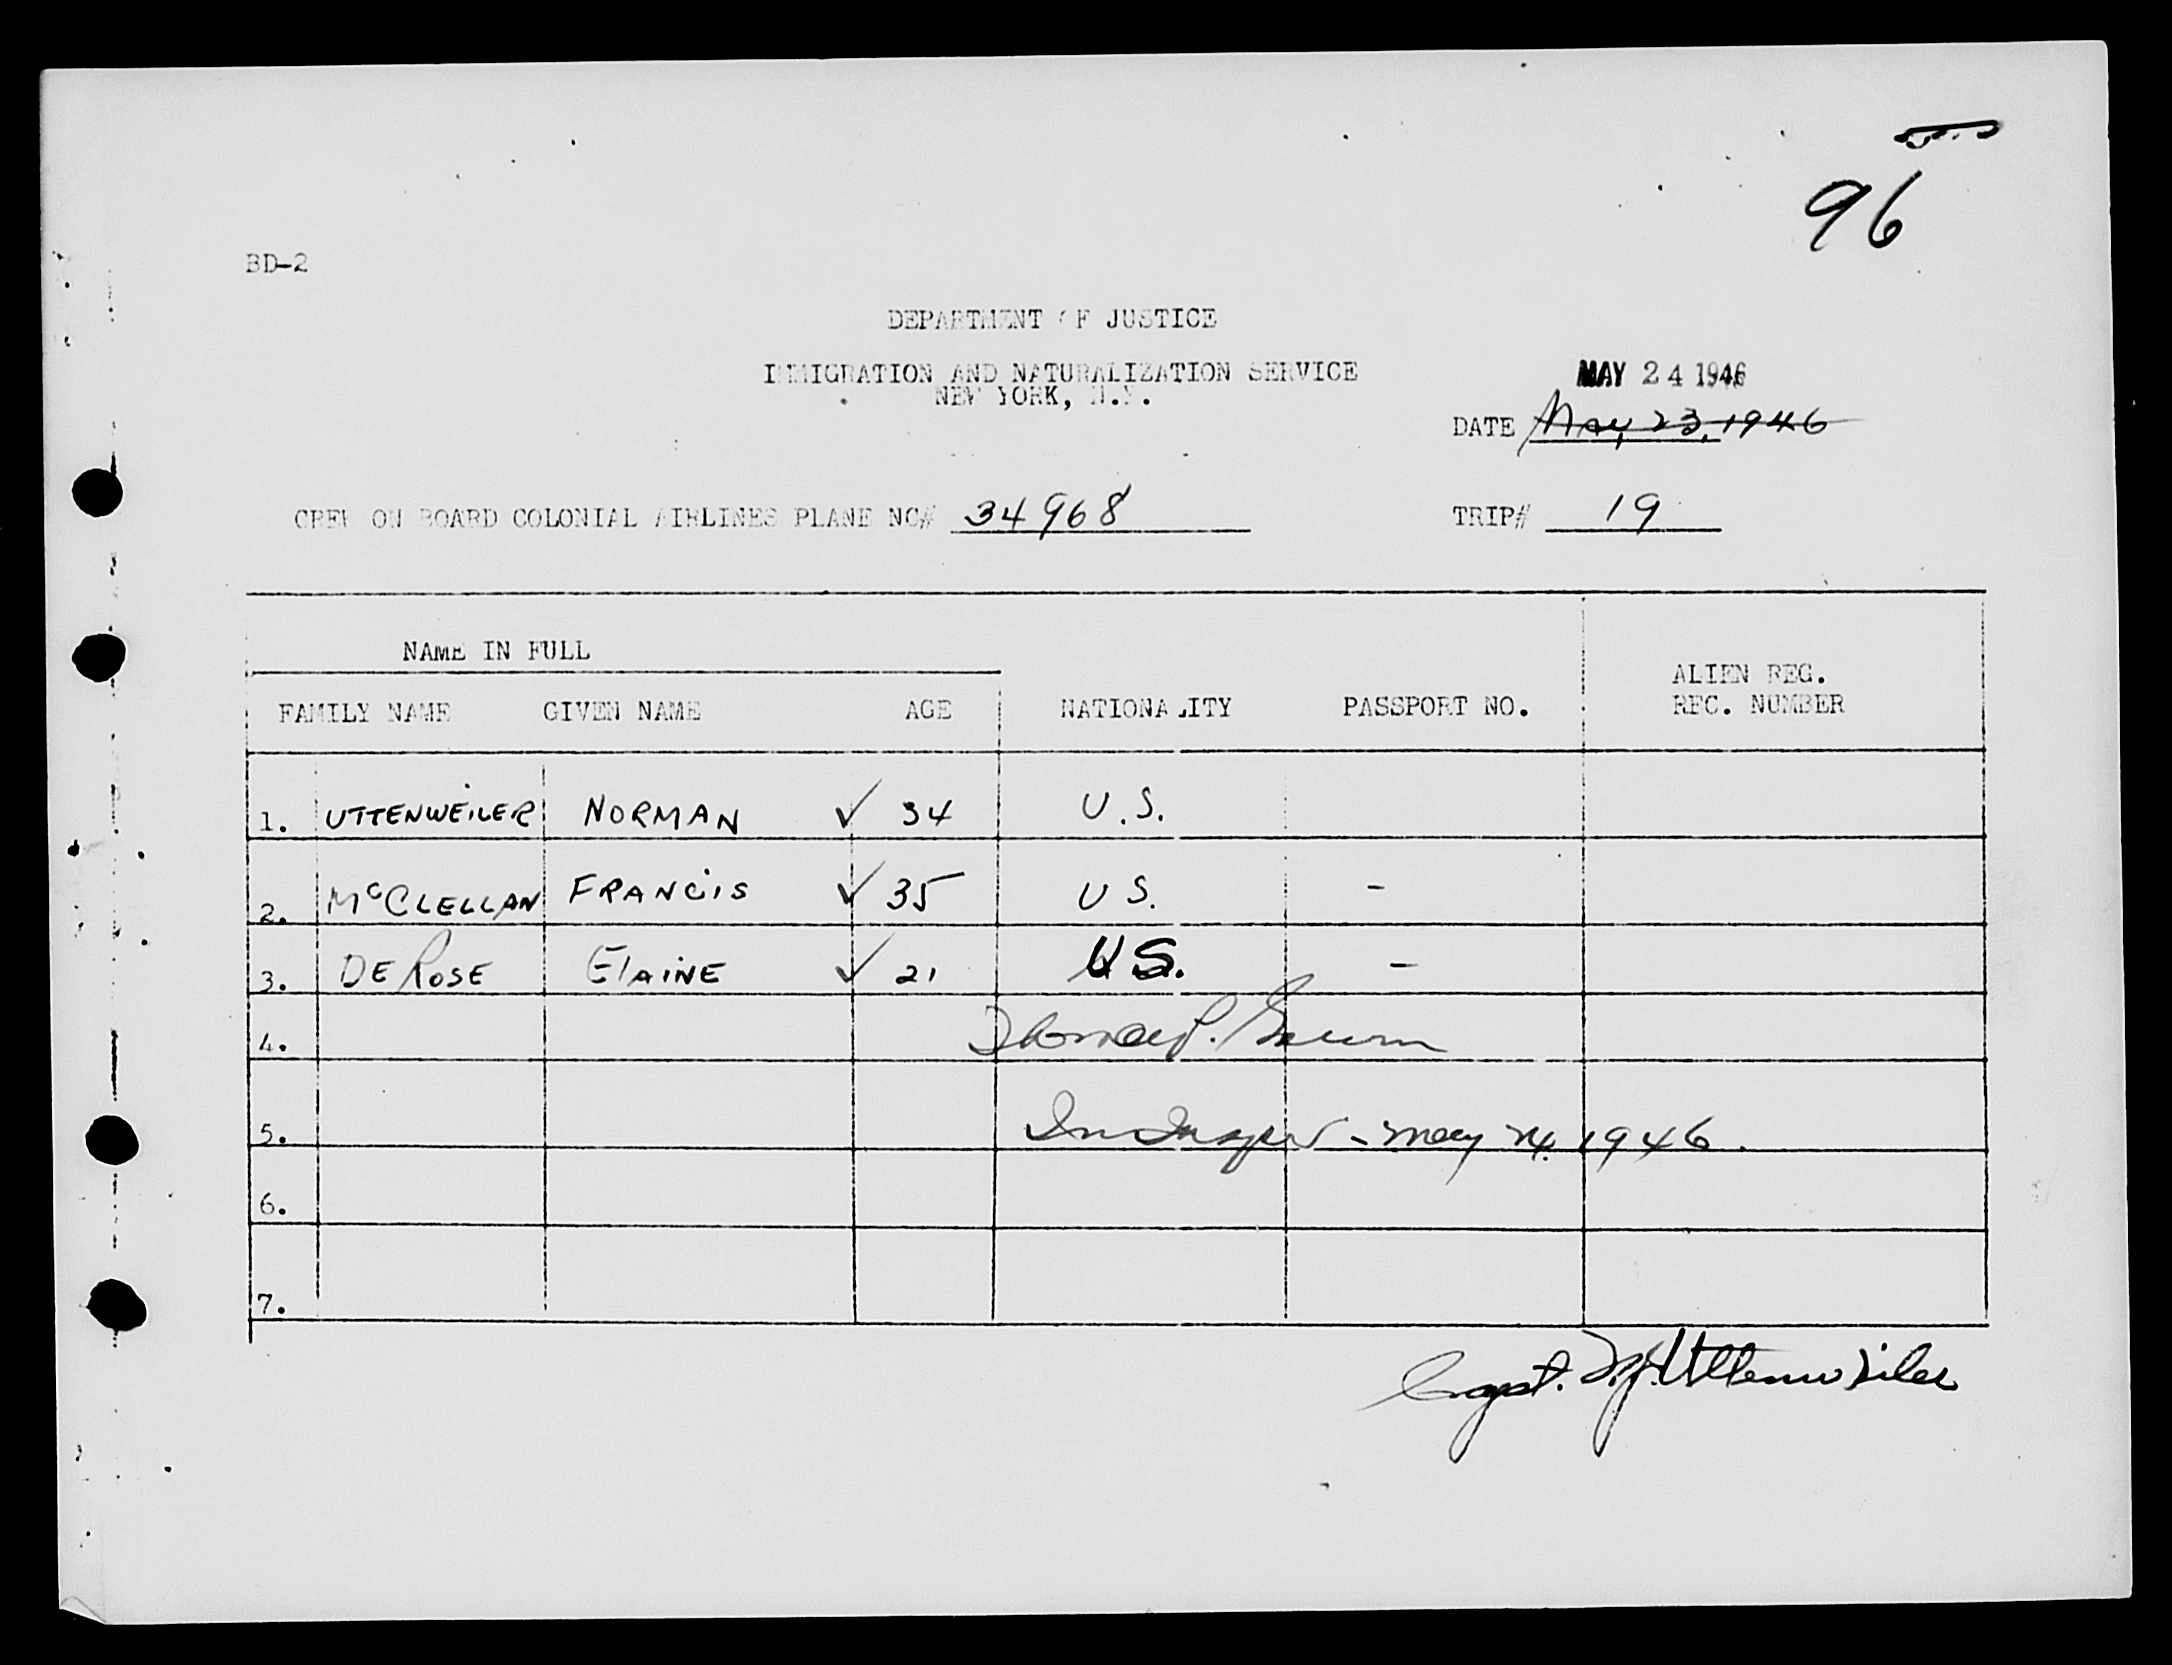 96
BD-2
DEPARTMENT OF JUSTICE
IMMIGRATION AND NATURALIZATION SERVICE
NEW YORK, N.Y.
MAY 24 1946
DATE May 23, 1946
CREW ON BOARD COLONIAL AIRLINES PLANE NO# 34968 TRIP# 19
NAME IN FULL
FAMILY NAME GIVEN NAME AGE NATIONALITY PASSPORT NO. ALIEN REG. REC. NUMBER
1. UTTENWEILER NORMAN ✓ 34 U.S.
2. McCLELLAN FRANCIS ✓ 35 U S. -
3. DE ROSE ELAINE ✓ 21 U S. -
4. Thomas P.
5. Imm Inspr - May 24, 1946.
6.
7.
Capt. N.J. Uttenweiler